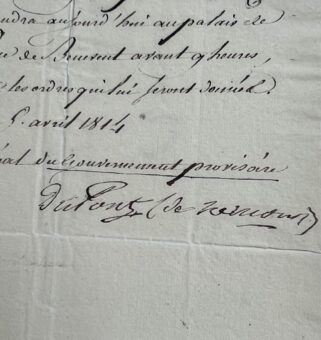 ndra aujourd'hui au palais de
de Benevent avant 9 heures,
les ordres qui lui seront donnés.
5. avril 1814
du Gouvernement provisoire
Du Pont (de Nemours)